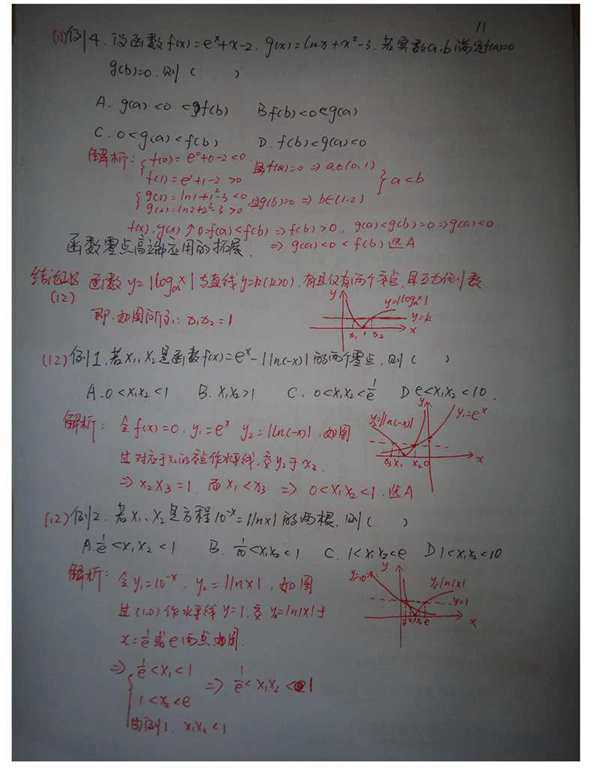 11
(11)例4.设函数f(x)=eˣ+x-2,g(x)=lnx+x²-3.若实数a,b满足f(a)=0
g(b)=0.则( )
A. g(a)<0<f(b) B.f(b)<0<g(a)
C.0<g(a)<f(b) D.f(b)<g(a)<0
解析:{f(0)=e⁰+0-2<0 且f(a)=0⇒a∈(0,1)
f(1)=e¹+1-2>0 }a<b
{g(1)=ln1+1²-3<0 且g(b)=0⇒b∈(1,2)
g(2)=ln2+2²-3>0
f(x).g(x)↑0=f(a)<f(b)⇒f(b)>0, g(a)<g(b)=0⇒g(a)<0
函数零点高端应用的拓展. ⇒g(a)<0<f(b)选A
(12) 函数y=|logₐx|与直线y=k(k>0),有且仅有两个交点,且互为倒数
即:如图所示:x₁x₂=1
y y=|logₐx| y=k x₁ 1 x₂ x
(12)例1.若x₁,x₂是函数f(x)=eˣ-|ln(-x)|的两个零点,则( )
A.0<x₁x₂<1 B.x₁x₂>1 C.0<x₁x₂<1/e D e<x₁x₂<10.
解析:令f(x)=0,y₁=eˣ y₂=|ln(-x)|,如图
y₂=|ln(-x)| y y₁=eˣ x₃ x₁ x₂ 0 x
作水平线,交y₂于x₃
⇒x₂x₃=1,而x₁<x₃⇒0<x₁x₂<1.选A
(12)例2.若x₁,x₂是方程10⁻ˣ=|lnx|的两根,则( )
A.1/e<x₁x₂<1 B.1/10<x₁x₂<1 C.1<x₁x₂<e D 1<x₁x₂<10
解析:令y₁=10⁻ˣ,y₂=|lnx|,如图
y y₂=|lnx| y=1 x
过(1,0)作水平线y=1,交y₂=|lnx|于
x=1/e或e两点如图.
⇒{1/e<x₁<1 ⇒1/e<x₁x₂<1
1<x₂<e
由例1,x₁x₂<1